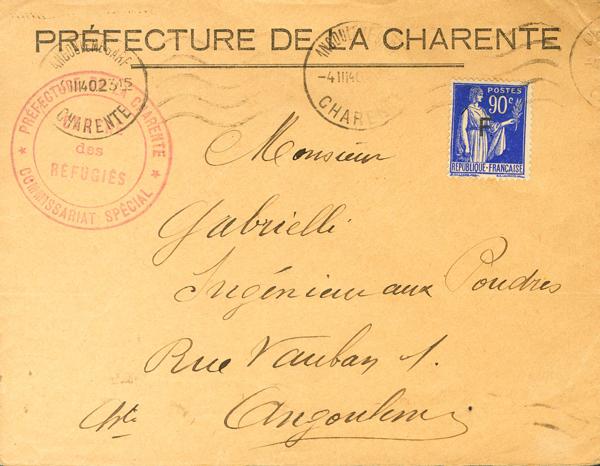 PRÉFECTURE DE LA CHARENTE
ANGOULEME GARE
-4 III 40
CHARENTE
ANGOULEME GARE
III 40 2315
CHARENTE
★ PRÉFECTURE DE LA CHARENTE ★
des
RÉFUGIÉS
COMMISSARIAT SPÉCIAL
POSTES
90c
F
RÉPUBLIQUE FRANÇAISE
Monsieur
Gabrielli
Ingénieur aux Poudres
Rue Vauban 1.
Angoulême